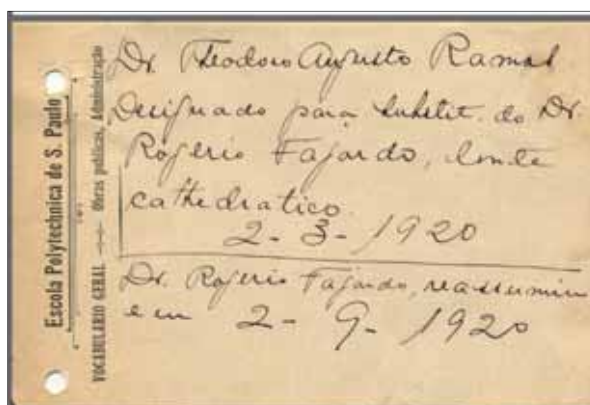 Escola Polytechnica de S. Paulo
VOCABULARIO GERAL — Obras publicas, Administração
Dr. Theodoro Augusto Ramos
Designado para substit. do Dr.
Rogerio Fajardo, lente
cathedratico.
2-3-1920
Dr. Rogerio Fajardo, reassumiu
em 2-9-1920